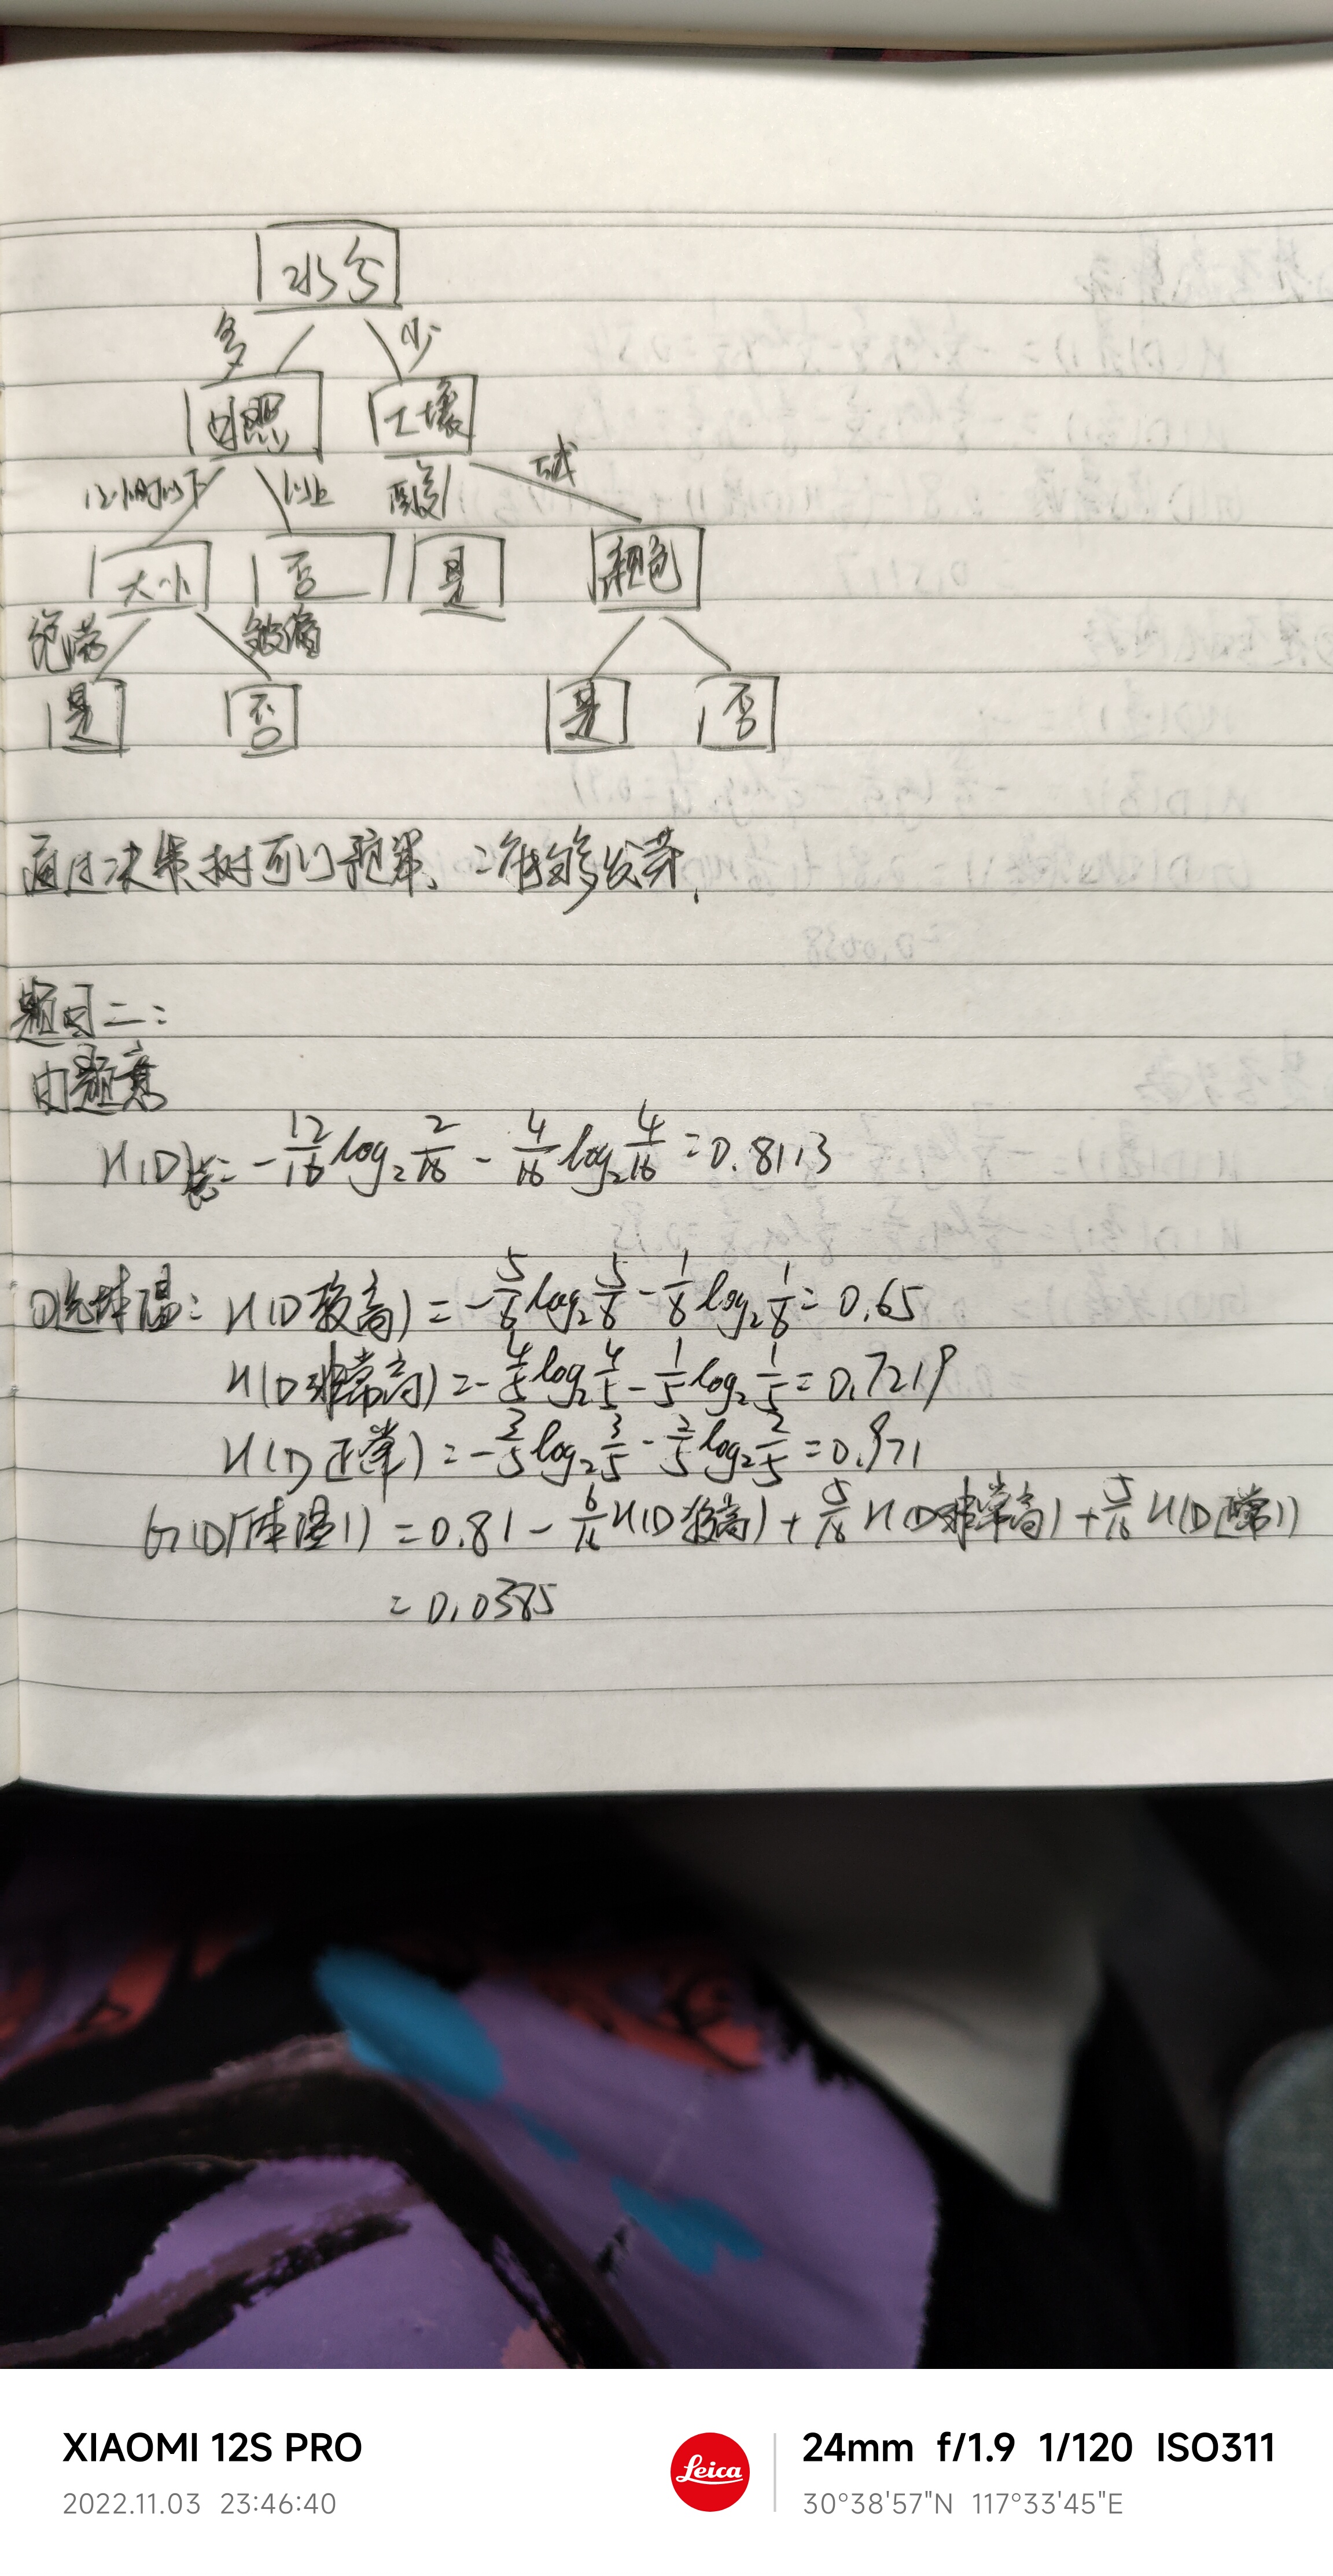 水分
多 少
日照 土壤
12小时以下 以上 酸 碱
大小 否 是 颜色
饱满 皱瘪
是 否 是 否
通过决策树可以预算、二能够发芽.
题目二:
由题意
H(D)总= -12/16 log₂ 2/16 - 4/16 log₂ 4/16 = 0.8113
①选体温: H(D较高) = -5/6 log₂ 5/6 - 1/6 log₂ 1/6 = 0.65
H(D非常高) = -4/5 log₂ 4/5 - 1/5 log₂ 1/5 = 0.7219
H(D正常) = -3/5 log₂ 3/5 - 2/5 log₂ 2/5 = 0.971
G(D|体温1) = 0.81 - 6/16 H(D较高) + 5/16 H(D非常高) + 5/16 H(D正常1)
= 0.0385
XIAOMI 12S PRO
2022.11.03 23:46:40
Leica
24mm f/1.9 1/120 ISO311
30°38'57"N 117°33'45"E